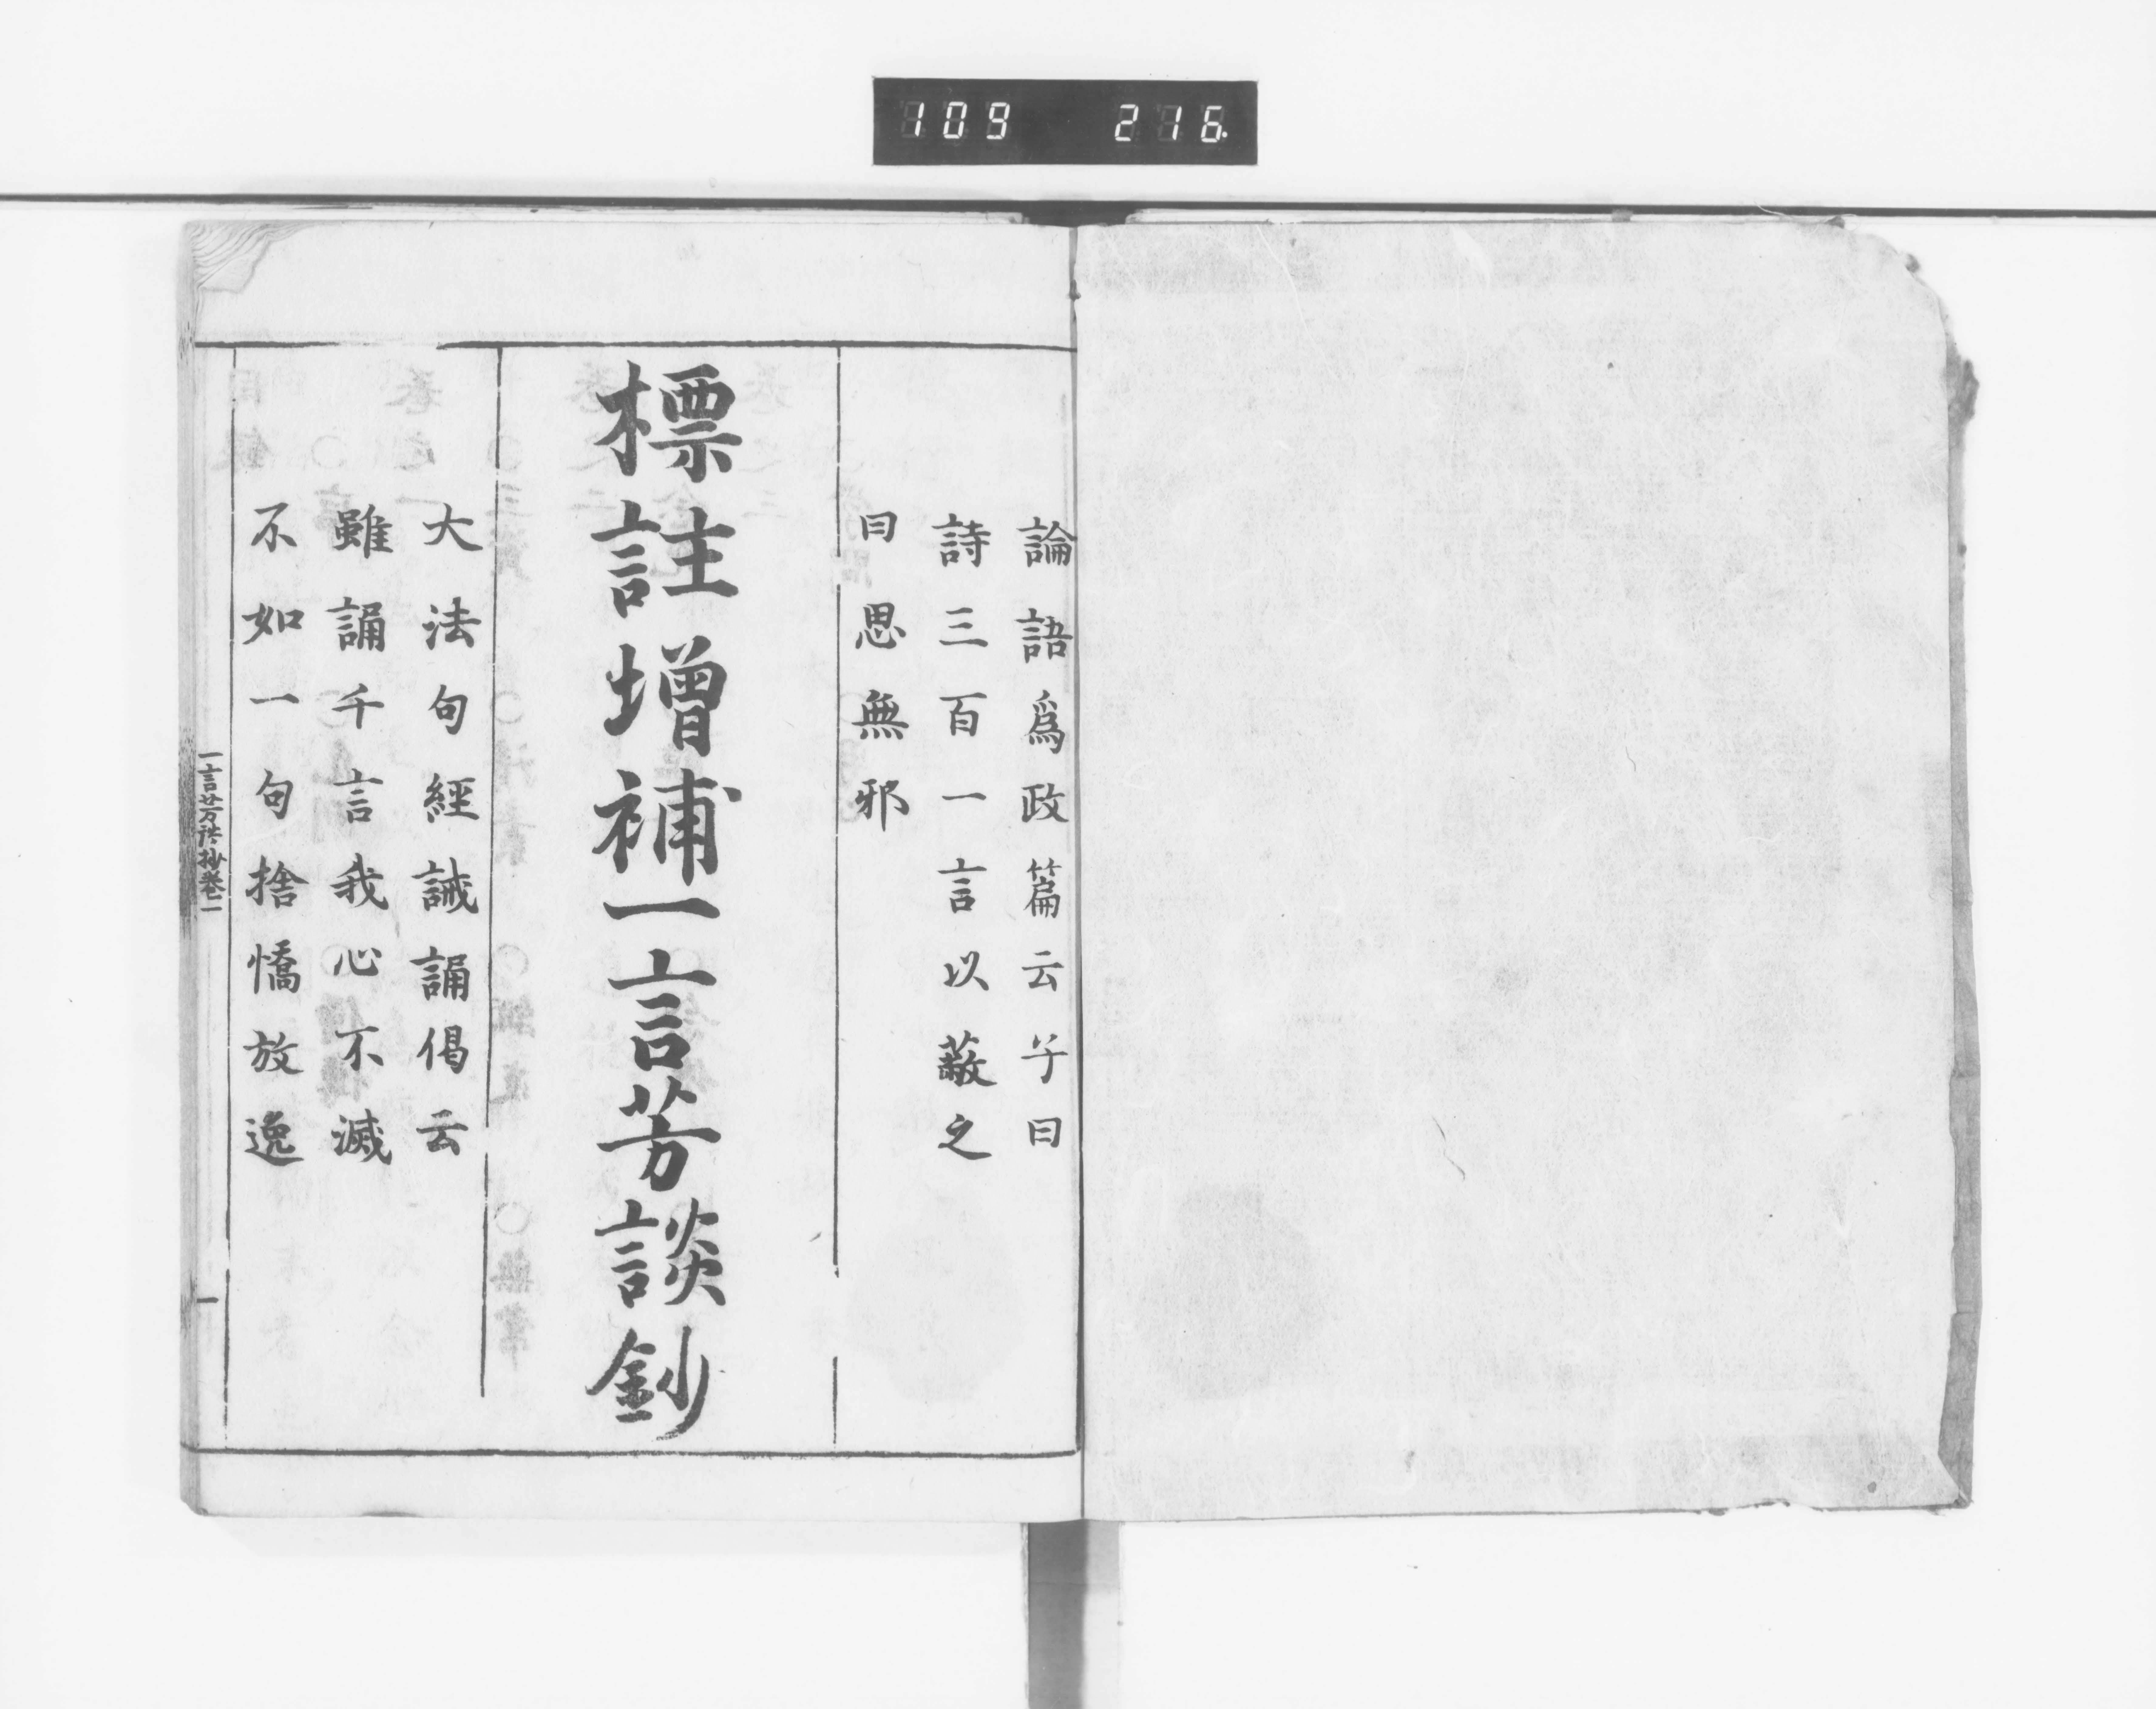 109 216.
論語爲政篇云子曰
詩三百一言以蔽之
曰思無邪
標註增補一言芳談鈔
大法句經誡誦偈云
雖誦千言我心不滅
不如一句捨憍放逸
一言芳談抄卷一
一